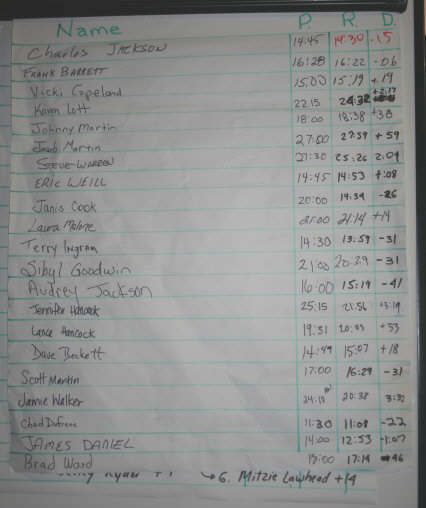 Name P. R. D.
Charles JACKSON 14:45 14:30 -15
FRANK BARRETT 16:28 16:22 -06
Vicki Copeland 15:00 15:19 +19
Karen Lott 22:15 24:32 +2:17
Johnny Martin 18:00 18:38 +38
Jacob Martin 27:00 27:59 +59
STEVE WARREN 27:30 25:26 2:04
ERIC WEILL 14:45 14:53 +:08
Janis Cook 20:00 19:34 -26
Laura Malone 21:00 21:14 +14
Terry Ingram 14:30 13:59 -31
Sibyl Goodwin 21:00 20:29 -31
Audrey Jackson 16:00 15:19 -41
Jennifer Hancock 25:15 21:56
Lance Hancock 19:31 +53
Dave Beckett 14:49 15:07 +18
Scott Martin 17:00 16:29 -31
Jamie Walker 20:38
Chad Dufrene 11:30 11:08 -22
JAMES DANIEL 14:00 12:53 -1:07
Brad Ward 17:14 46
Ryan +1 6. Mitzie Lawhead +14